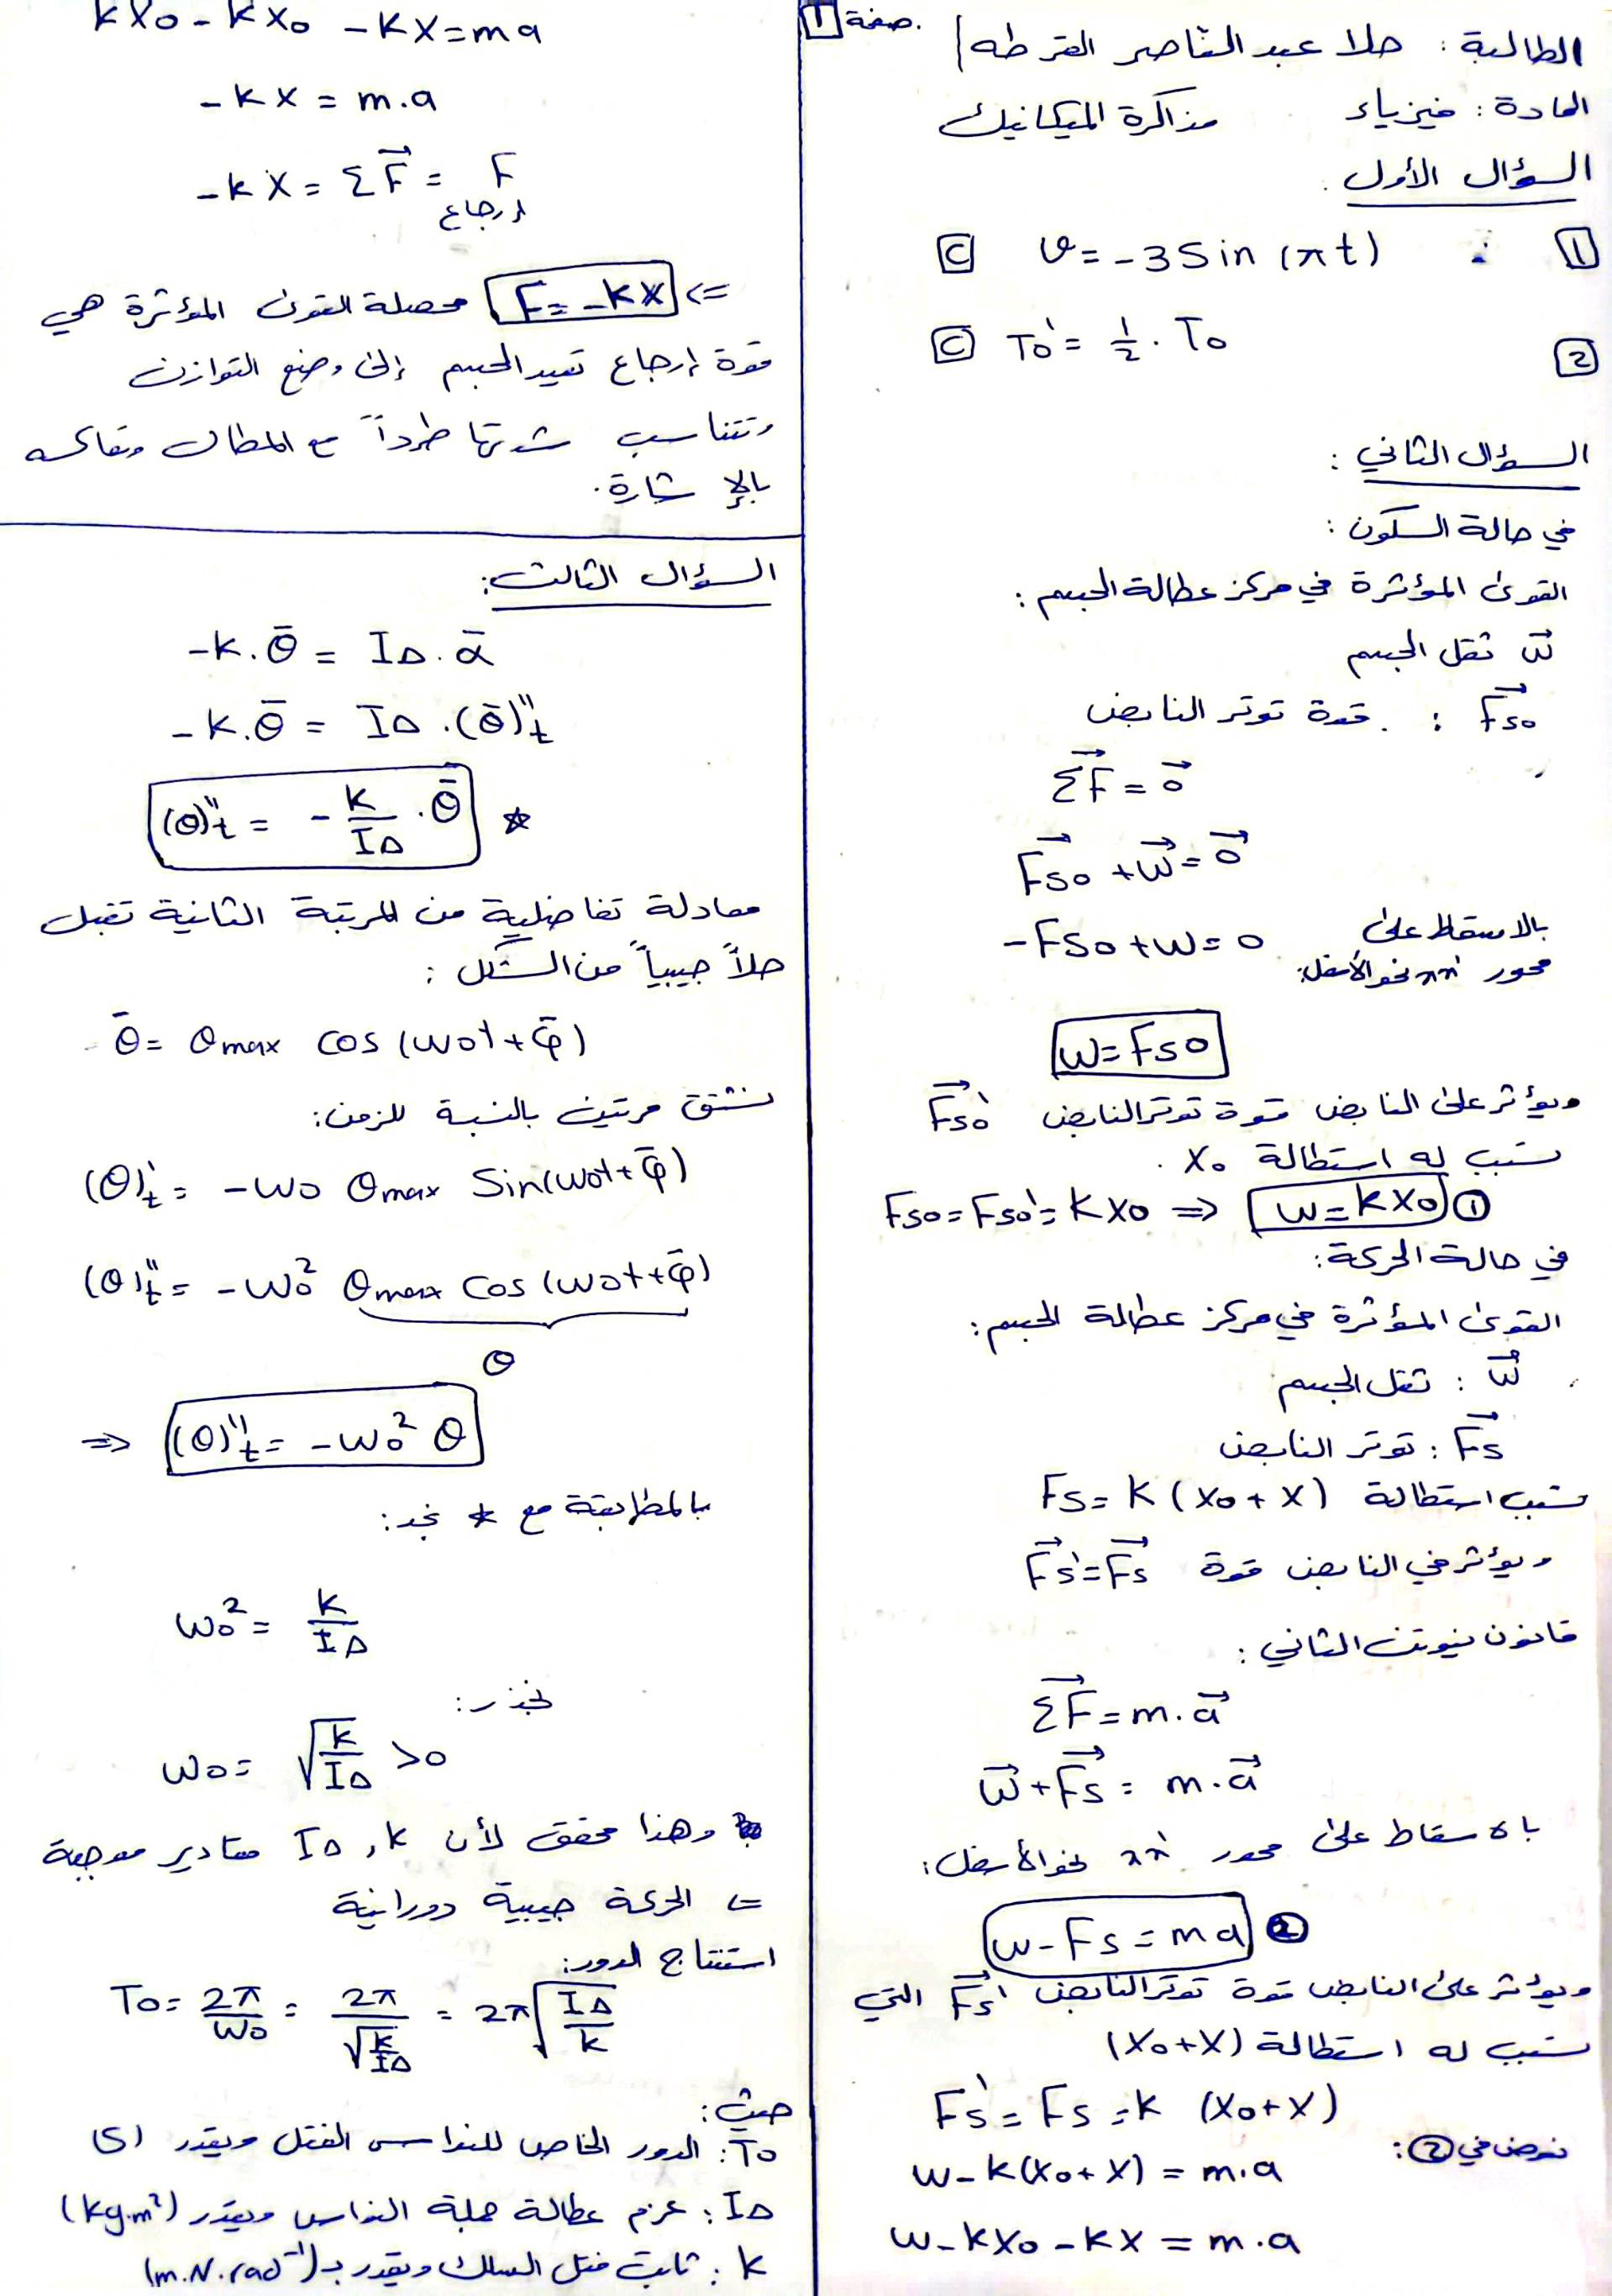 صفحة 1
الطالبة : حلا عبد الناصر القرطه
المادة : فيزياء مذاكرة الميكانيك
السؤال الأول :
1 C v = -3 Sin (πt)
2 C T0' = 1/2 . T0
السؤال الثاني :
في حالة السكون :
القوى المؤثرة في مركز عطالة الجسم :
w⃗ ثقل الجسم
F⃗s0 : قوة توتر النابض
ΣF⃗ = 0⃗
F⃗s0 + w⃗ = 0⃗
بالاسقاط على محور xx' نحو الأسفل: -Fs0 + w = 0
w = Fs0
ويؤثر على النابض قوة توتر النابض F⃗s0'
تسبب له استطالة x0 .
Fs0 = Fs0' = kx0 ⇒ w = kx0 ①
في حالة الحركة :
القوى المؤثرة في مركز عطالة الجسم :
w⃗ : ثقل الجسم
F⃗s : توتر النابض
تسبب استطالة Fs = k (x0 + x)
ويؤثر في النابض قوة F⃗s' = F⃗s
قانون نيوتن الثاني :
ΣF⃗ = m.a⃗
w⃗ + F⃗s = m.a⃗
بالاسقاط على محور xx' نحو الأسفل :
w - Fs = ma ②
ويؤثر على النابض قوة توتر النابض F⃗s' التي
تسبب له استطالة (x0+x)
Fs' = Fs = k (x0+x)
نعوض في ② :
w - k(x0+x) = m.a
w - kx0 - kx = m.a
kx0 - kx0 - kx = ma
-kx = m.a
-kx = ΣF⃗ = F إرجاع
⇒ F = -kx محصلة القوى المؤثرة هي
قوة إرجاع تعيد الجسم إلى وضع التوازن
وتتناسب شدتها طرداً مع المطال وتعاكسه
بالإشارة .
السؤال الثالث :
-k.θ̄ = IΔ.ᾱ
-k.θ̄ = IΔ.(θ̄)''t
(θ)''t = - k/IΔ . θ̄ ☆
معادلة تفاضلية من المرتبة الثانية تقبل
حلاً جيبياً من الشكل :
θ̄ = θmax cos (ω0t + φ̄)
نشتق مرتين بالنسبة للزمن :
(θ)'t = -ω0 θmax Sin(ω0t + φ̄)
(θ)''t = -ω0² θmax cos (ω0t + φ̄)
θ
⇒ (θ)''t = -ω0² θ
بالمطابقة مع ☆ نجد :
ω0² = k/IΔ
نجذر :
ω0 = √(k/IΔ) > 0
وهذا محقق لأن k , IΔ مقادير موجبة
⇐ الحركة جيبية دورانية
استنتاج الدور :
T0 = 2π/ω0 = 2π/√(k/IΔ) = 2π√(IΔ/k)
حيث :
T0 : الدور الخاص للنواس الفتل ويقدر (s)
IΔ : عزم عطالة جملة النواس ويقدر (kg.m²)
k : ثابت فتل السلك ويقدر بـ (m.N.rad⁻¹)